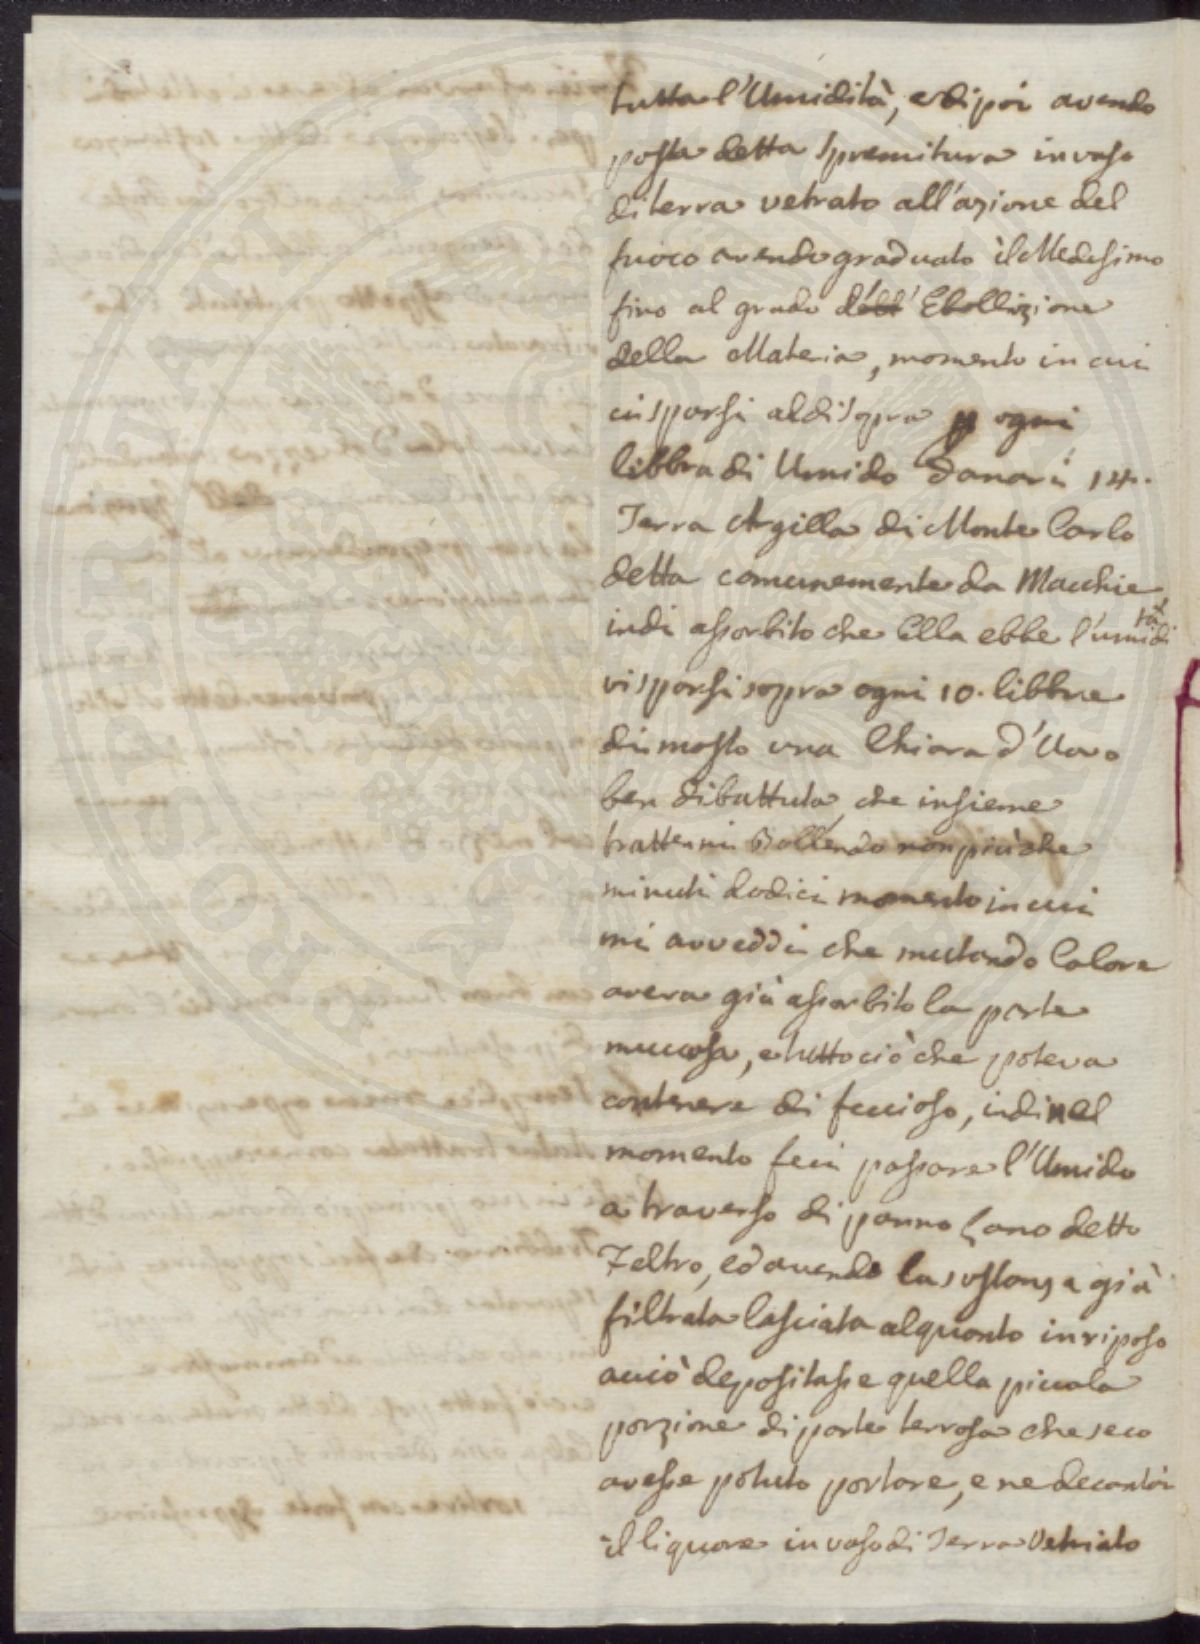 tutta l'Umidità, e di poi avendo
posta detta Spremitura in vaso
di terra vetrato all'azione del
fuoco avendo graduato il Medesimo
fino al grado dell' Ebollizione
della Materia, momento in cui
ci sparsi al di sopra p ogni
libbra di Umido Danari 14.
Terra Argilla di Monte Carlo
detta comunemente da Macchie,
indi assorbito che Ella ebbe l'umidità
vi sparsi sopra ogni 10. libbre
di mosto una Chiara d'Uovo
ben dibattuta, che insieme
trattenni Bollendo non più che
minuti dodici momento in cui
mi avveddi che mutando Colore
avera già assorbito la parte
muccosa, e tutto ciò che poteva
contenere di feccioso, indi nel
momento feci passare l'Umido
a traverso di panno Lano detto
Feltro, ed avendo la sostanza già
filtrata lasciata alquanto in riposo
acciò depositasse quella piccola
porzione di parte terrosa che seco
avesse potuto portare, e ne decantai
il liquore in vaso di Terra Vetriato